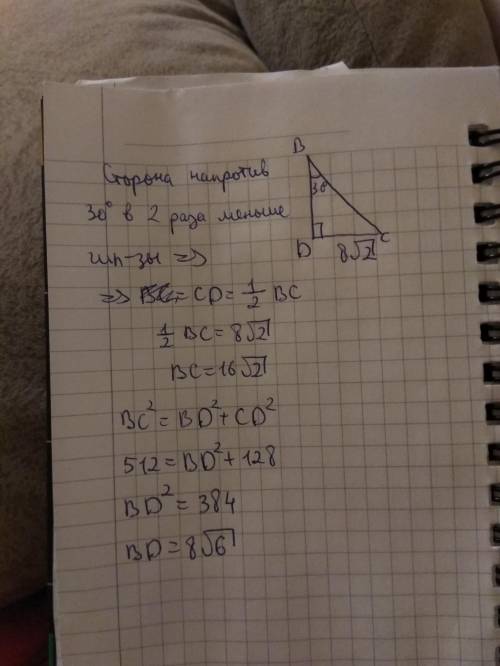 B
Сторона напротив
30°
30° в 2 раза меньше
D
C
8√2
гип-зы =>
=> = CD = 1/2 BC
1/2 BC = 8√2
BC = 16√2
BC² = BD² + CD²
512 = BD² + 128
BD² = 384
BD = 8√6